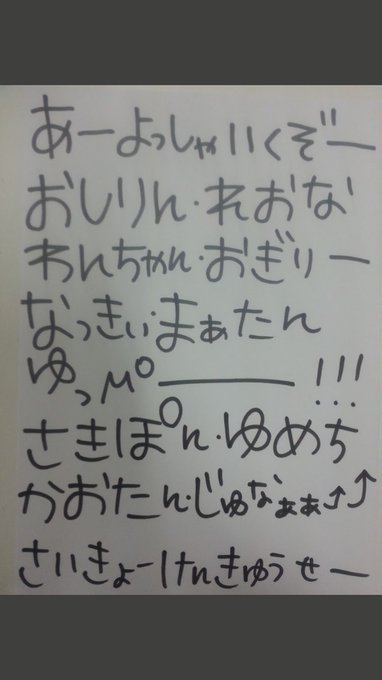 あーよっしゃいくぞー
おしりん・れおな
れんちゃん・おぎりー
なっきぃ・まぁたん
ゆっμ○ー!!!
さきぽん・ゆめち
かおたん・じゅなぁぁ⤴⤴
さいきょーけんきゅうせー